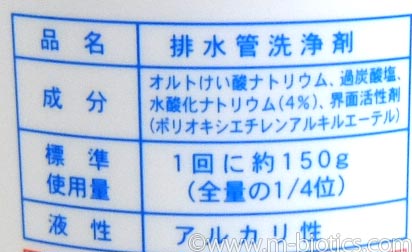 品名 排水管洗浄剤
成分 オルトけい酸ナトリウム、過炭酸塩、
水酸化ナトリウム(4%)、界面活性剤
(ポリオキシエチレンアルキルエーテル)
標準 1回に約150g
使用量 (全量の1/4位)
液性 アルカリ性
www.m-biotics.com